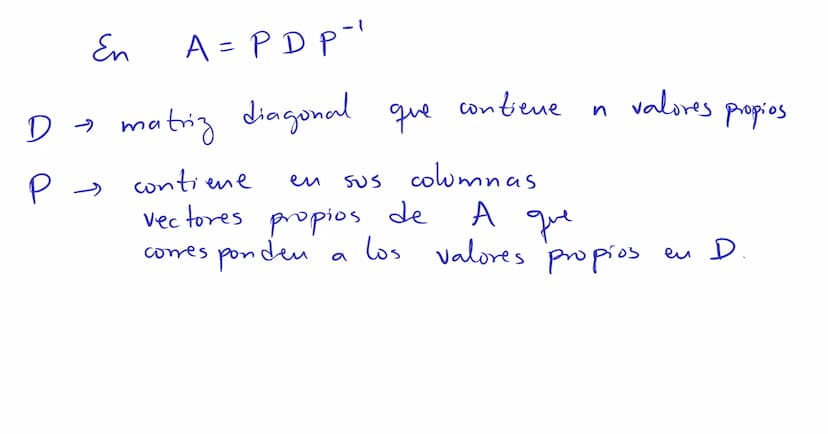 En A = P D P⁻¹
D → matriz diagonal que contiene n valores propios
P → contiene en sus columnas
vectores propios de A que
corresponden a los valores propios en D.